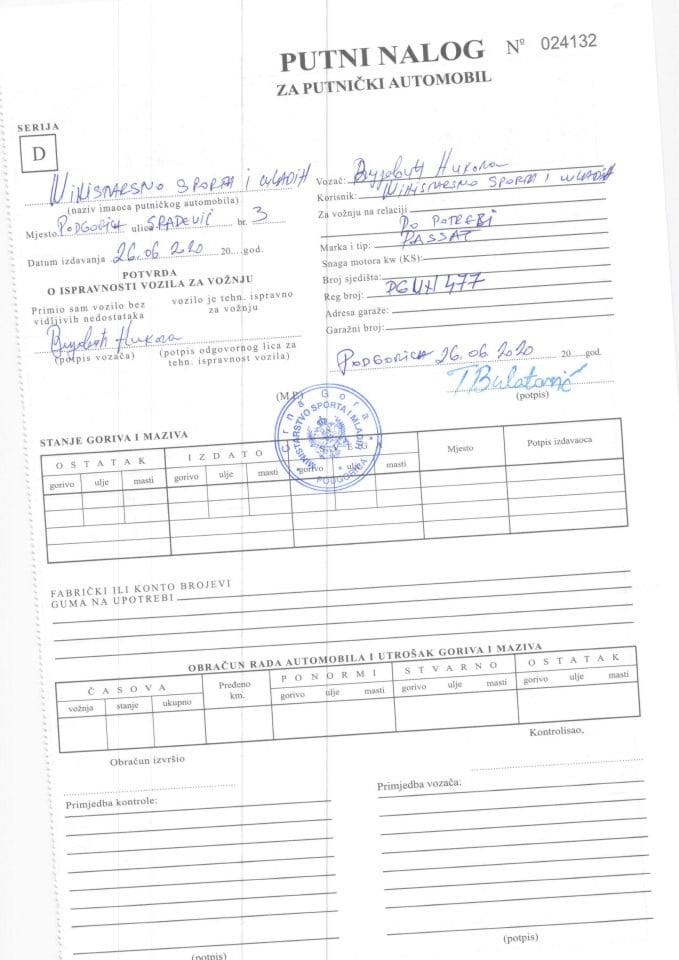 PUTNI NALOG Nº 024132
ZA PUTNIČKI AUTOMOBIL
SERIJA
D
MINISTARSTVO SPORTA I MLADIH
(naziv imaoca putničkog automobila)
Mjesto PODGORICA ulica br. 3
Datum izdavanja 26.06 2020 20....god.
POTVRDA
O ISPRAVNOSTI VOZILA ZA VOŽNJU
Primio sam vozilo bez vidljivih nedostataka
vozilo je tehn. ispravno za vožnju
Вујовић Никола
(potpis vozača) (potpis odgovornog lica za tehn. ispravnost vozila)
Vozač: Вујовић Никола
Korisnik: MINISTARSTVO SPORTA I MLADIH
Za vožnju na relaciji
PO POTREBI
Marka i tip: PASSAT
Snaga motora kw (KS):
Broj sjedišta:
Reg broj: PGUH 477
Adresa garaže:
Garažni broj:
PODGORICA 26.06 2020 20 god.
T Bulatović
(potpis)
(M.P.)
Crna Gora
MINISTARSTVO SPORTA I MLADIH
PODGORICA
STANJE GORIVA I MAZIVA
OSTATAK IZDATO Mjesto Potpis izdavaoca
gorivo ulje masti gorivo ulje masti gorivo ulje masti
FABRIČKI ILI KONTO BROJEVI
GUMA NA UPOTREBI
OBRAČUN RADA AUTOMOBILA I UTROŠAK GORIVA I MAZIVA
ČASOVA Pređeno km. PO NORMI STVARNO OSTATAK
vožnja stanje ukupno gorivo ulje masti gorivo ulje masti gorivo ulje masti
Obračun izvršio Kontrolisao,
Primjedba kontrole: Primjedba vozača:
(potpis) (potpis)